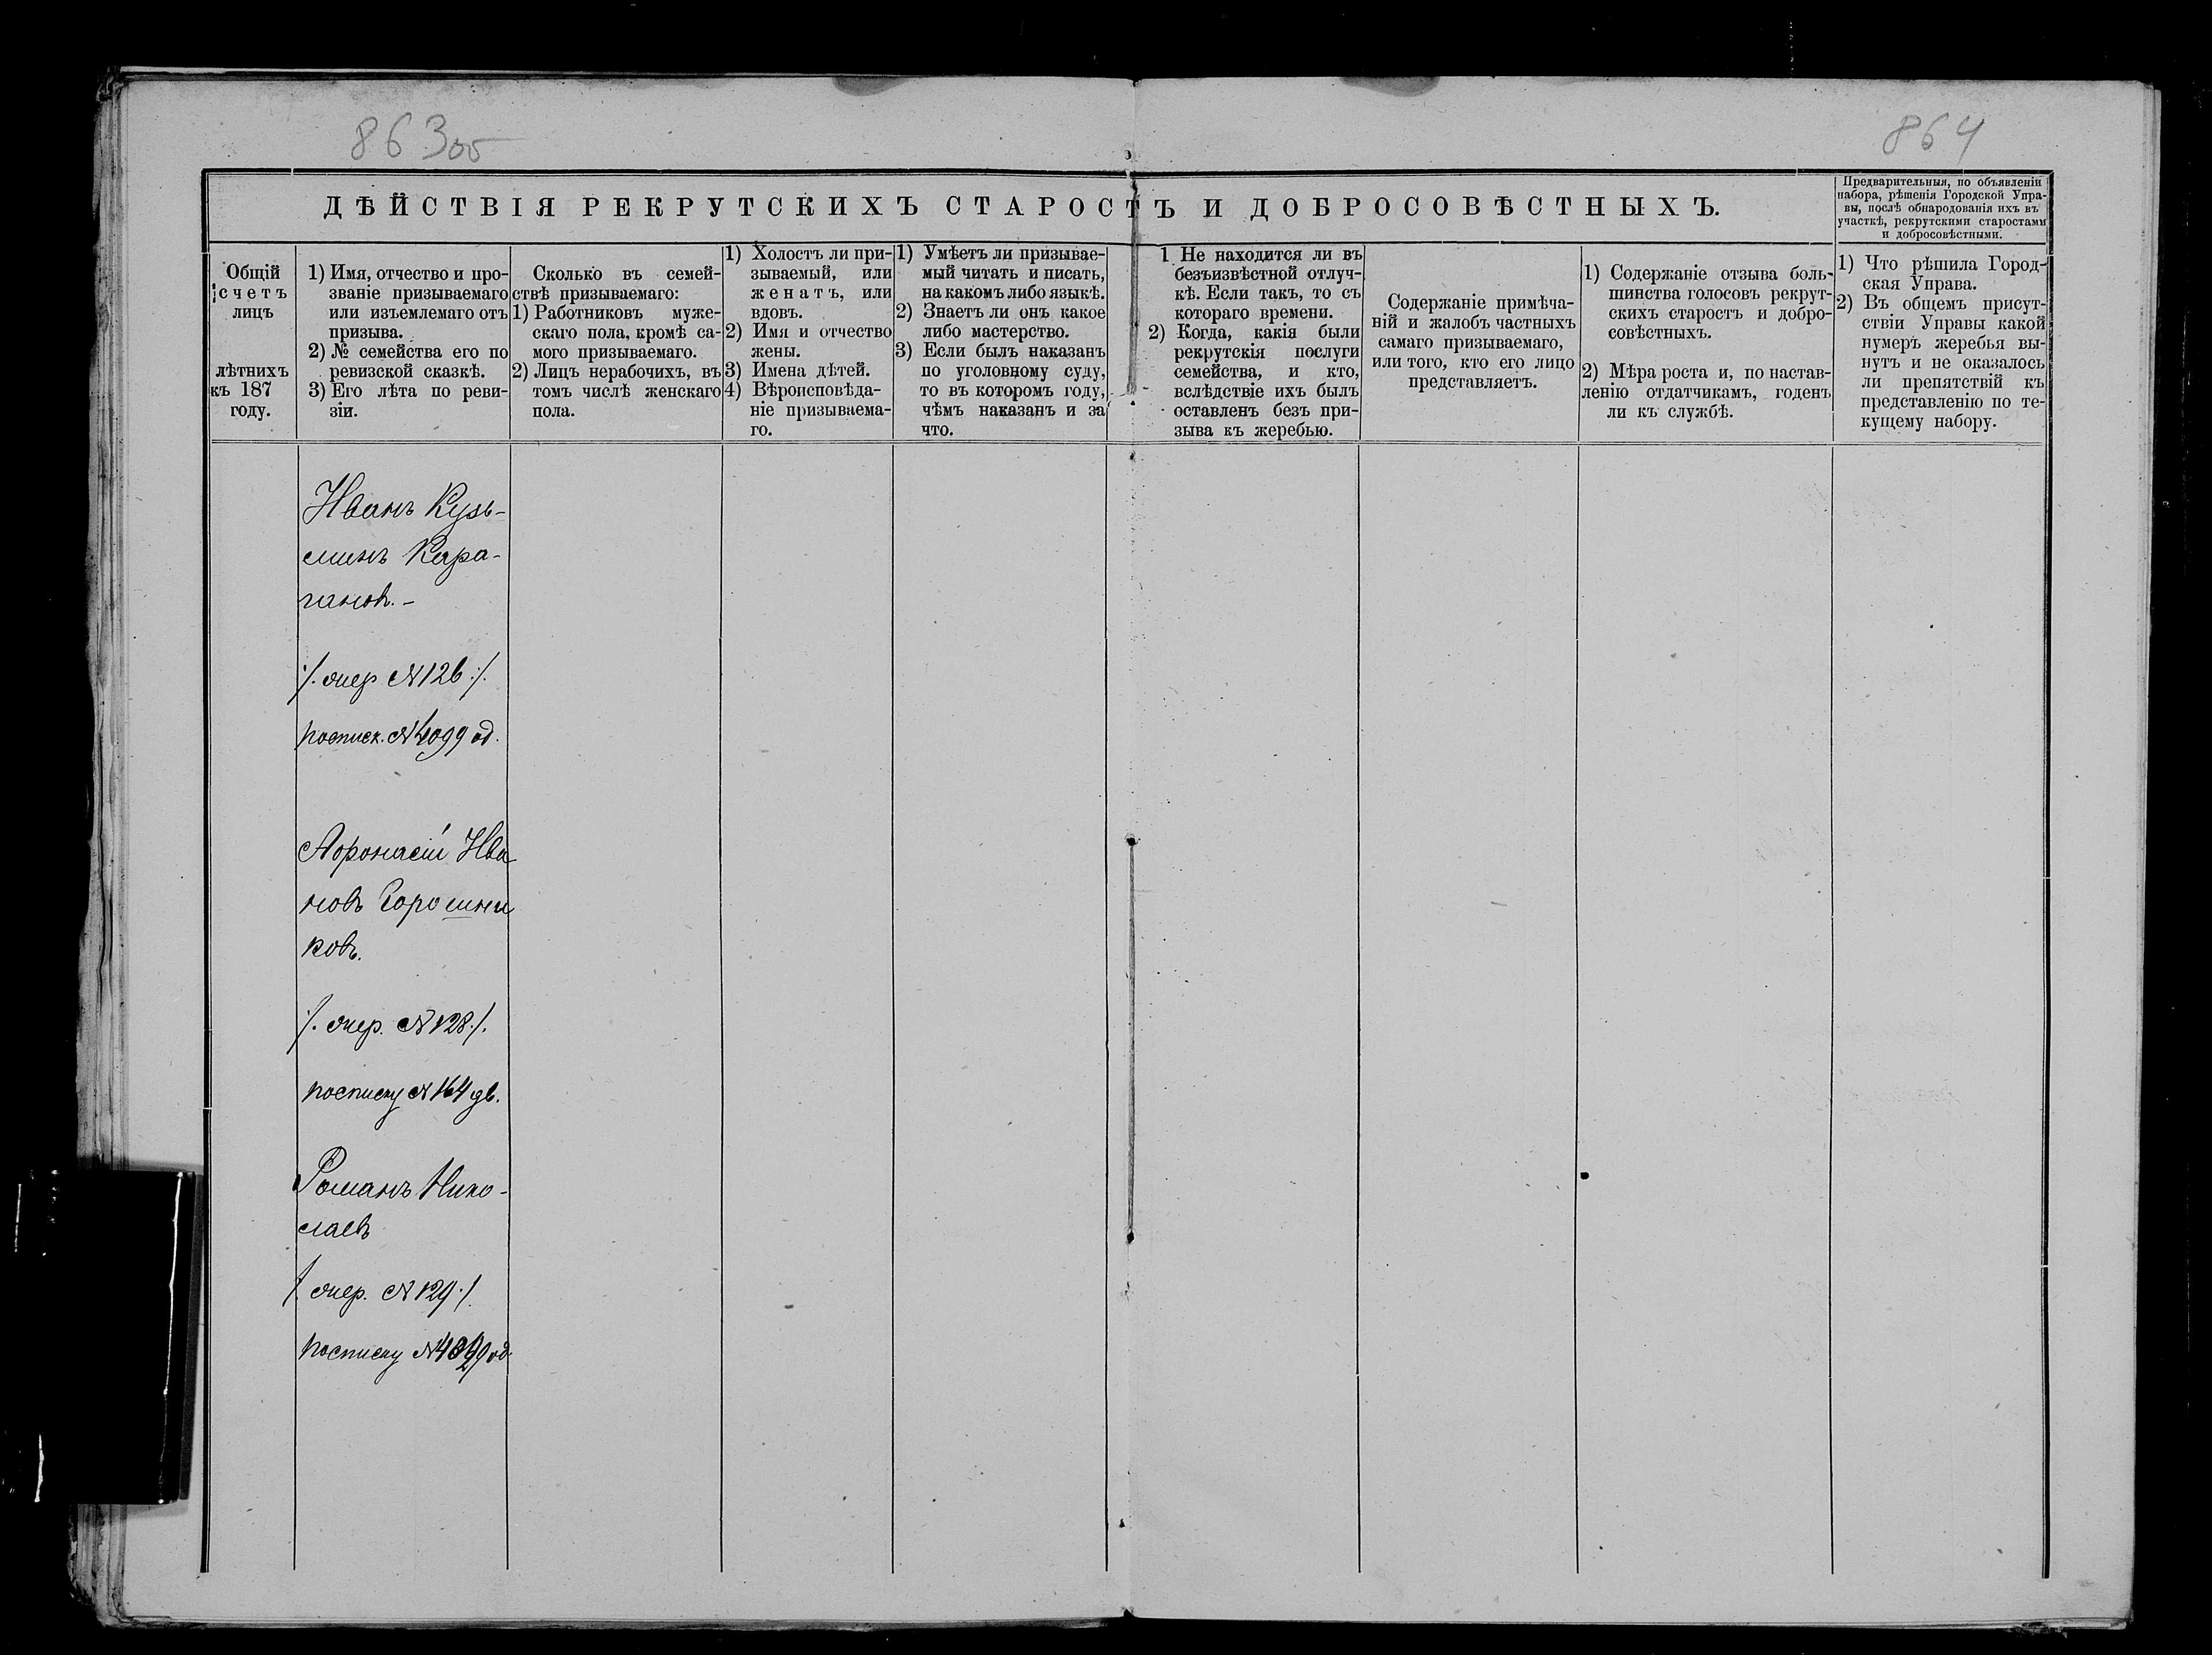 863об
864
ДѢЙСТВІЯ РЕКРУТСКИХЪ СТАРОСТЪ И ДОБРОСОВѢСТНЫХЪ.
Предварительныя, по объявленіи
набора, рѣшенія Городской Упра-
вы, послѣ обнародованія ихъ въ
участкѣ, рекрутскими старостами
и добросовѣстными.
Общій
счетъ
лицъ
лѣтнихъ
къ 187
году.
1) Имя, отчество и про-
званіе призываемаго
или изъемлемаго отъ
призыва.
2) № семейства его по
ревизской сказкѣ.
3) Его лѣта по реви-
зіи.
Сколько въ семей-
ствѣ призываемаго:
1) Работниковъ муже-
скаго пола, кромѣ са-
мого призываемаго.
2) Лицъ нерабочихъ, въ
томъ числѣ женскаго
пола.
1) Холостъ ли при-
зываемый, или
женатъ, или
вдовъ.
2) Имя и отчество
жены.
3) Имена дѣтей.
4) Вѣроисповѣда-
ніе призываема-
го.
1) Умѣетъ ли призывае-
мый читать и писать,
на какомъ либо языкѣ.
2) Знаетъ ли онъ какое
либо мастерство.
3) Если былъ наказанъ
по уголовному суду,
то въ которомъ году,
чѣмъ наказанъ и за
что.
1 Не находится ли въ
безъизвѣстной отлуч-
кѣ. Если такъ, то съ
котораго времени.
2) Когда, какія были
рекрутскія послуги
семейства, и кто,
вслѣдствіе ихъ былъ
оставленъ безъ при-
зыва къ жеребью.
Содержаніе примѣча-
ній и жалобъ частныхъ
самаго призываемаго,
или того, кто его лицо
представляетъ.
1) Содержаніе отзыва боль-
шинства голосовъ рекрут-
скихъ старостъ и добро-
совѣстныхъ.
2) Мѣра роста и, по настав-
ленію отдатчикамъ, годенъ
ли къ службѣ.
1) Что рѣшила Город-
ская Управа.
2) Въ общемъ присут-
ствіи Управы какой
нумеръ жеребья вы-
нутъ и не оказалось
ли препятствій къ
представленію по те-
кущему набору.
Иванъ Кузь-
минъ Кара-
ганов. -
/. очер №126 ./.
посписк. №4099 од.
Афонасій Ива
новъ Горошни
ковъ.
/. очер. №128 ./.
посписку №164 дв.
Романъ Нико-
лаевъ
/ очер. №129 ./.
посписку № од.